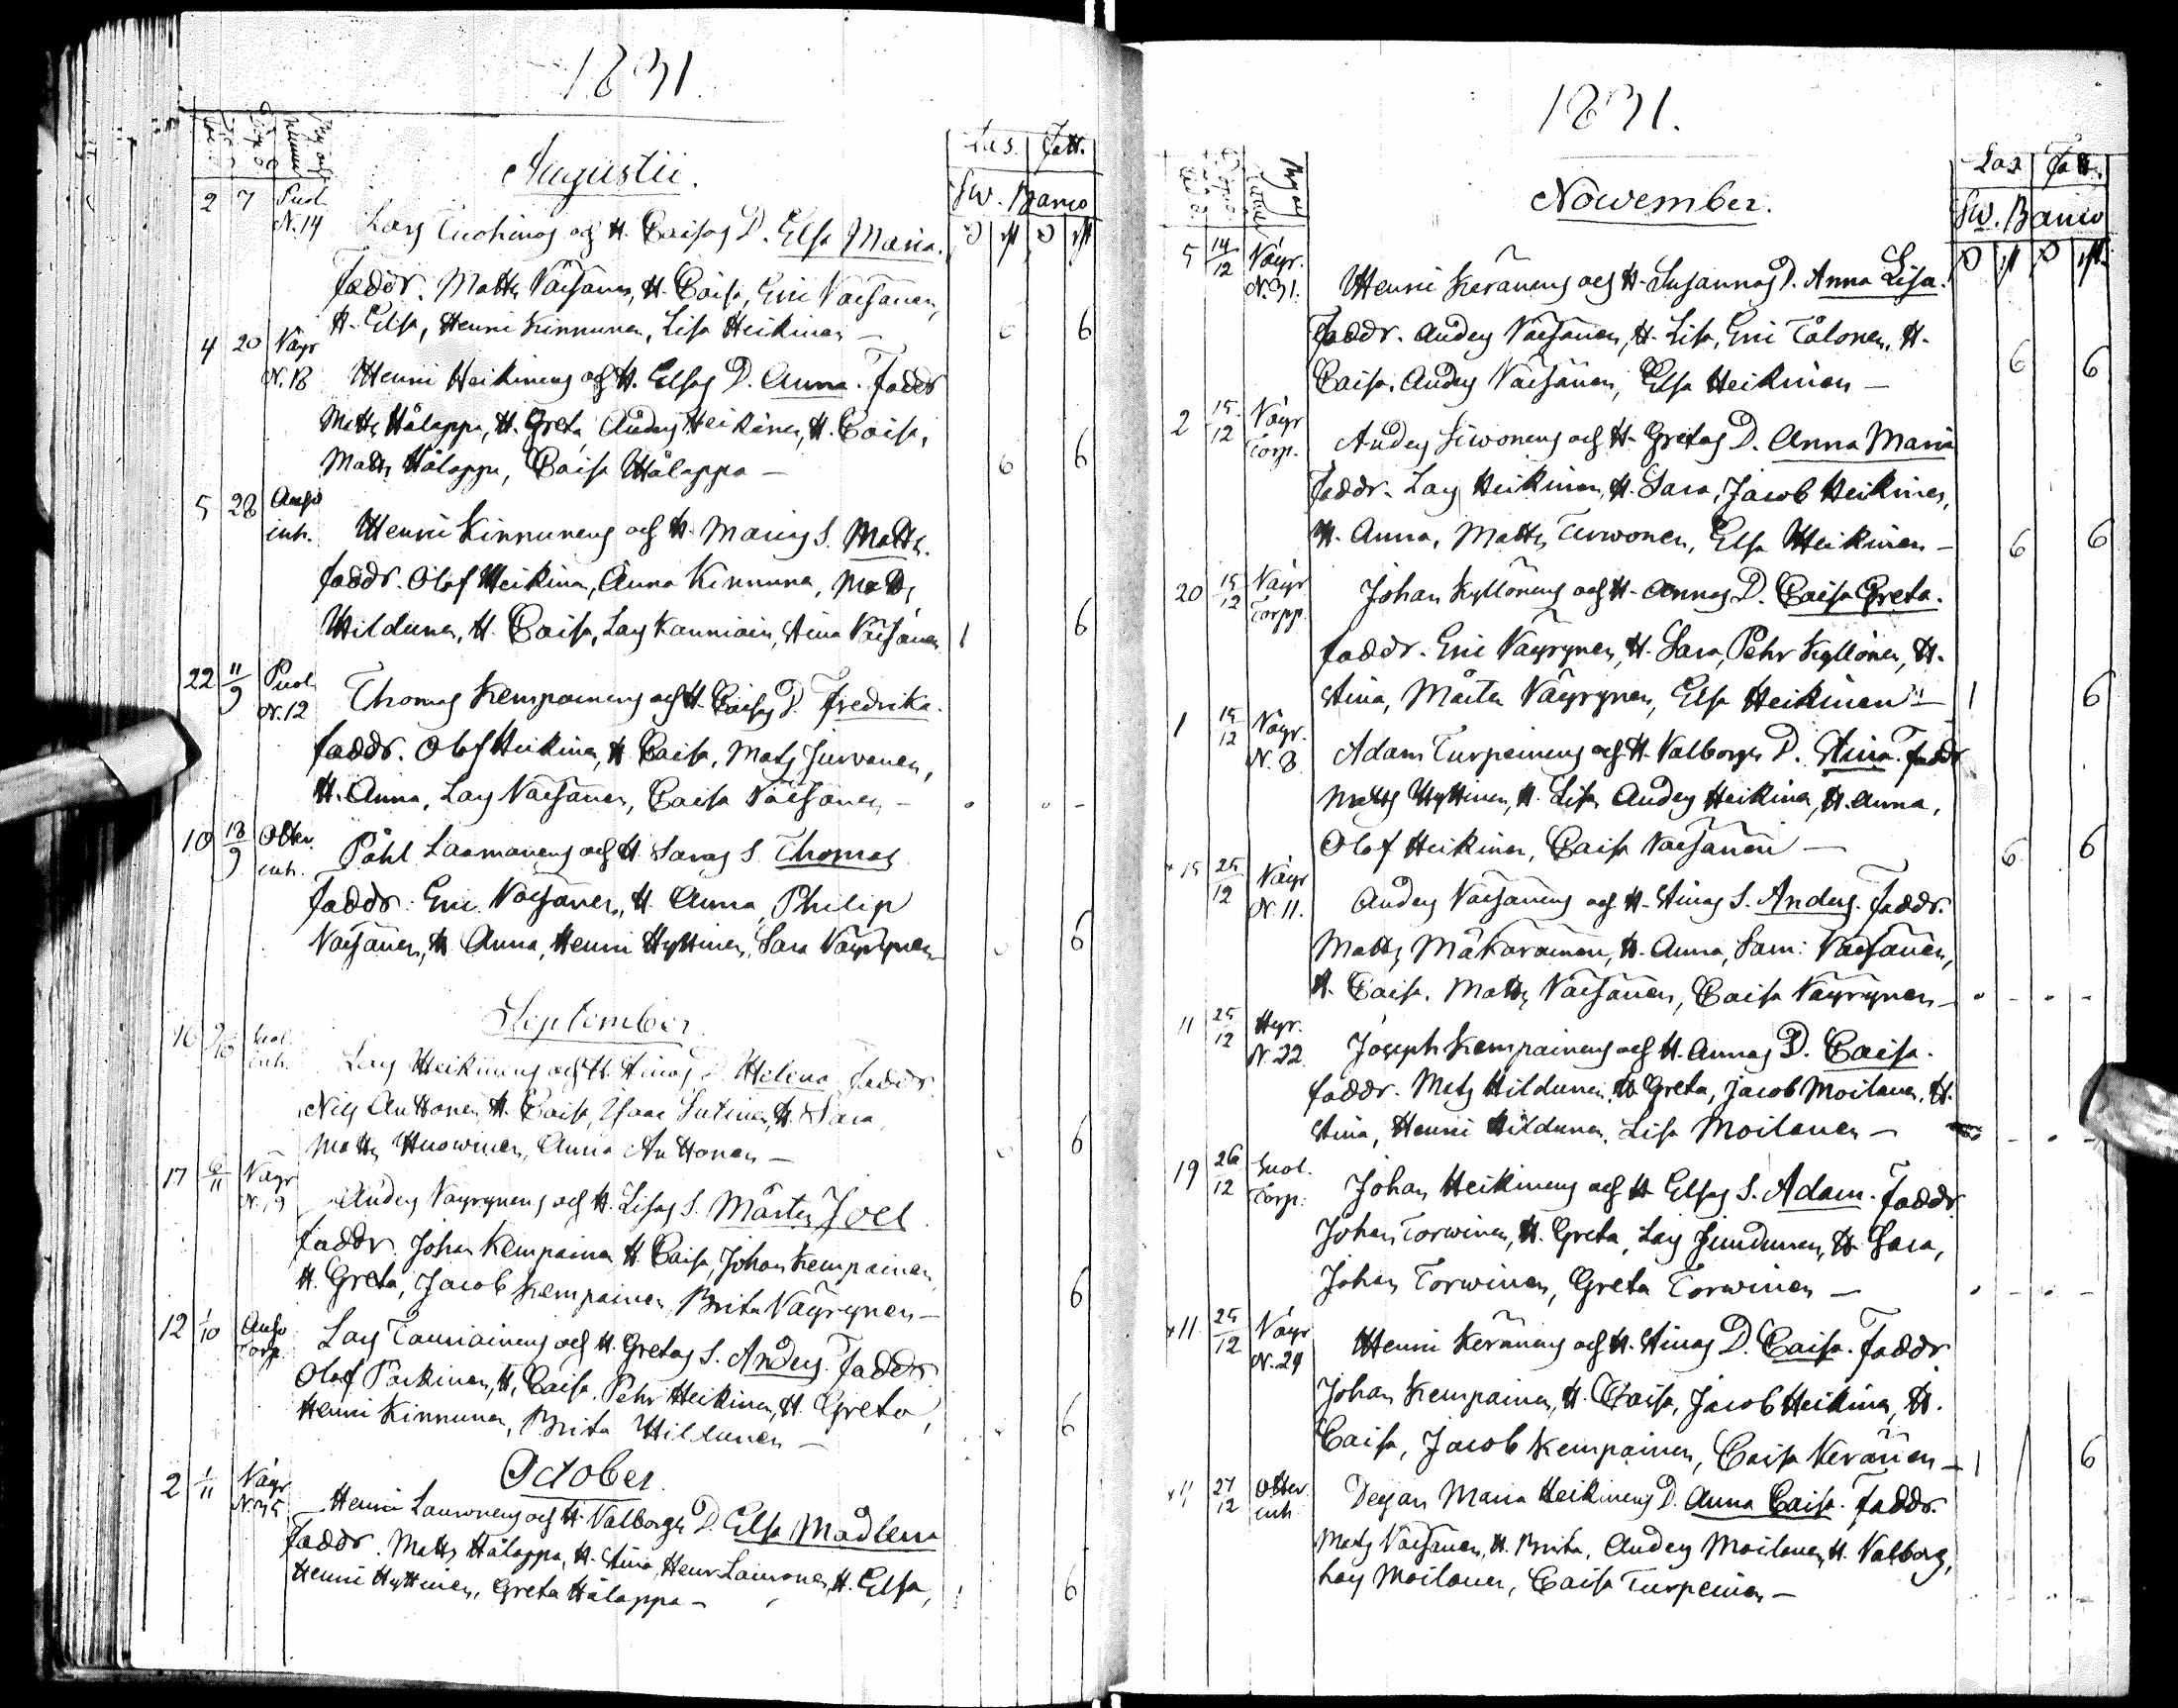 1831
Augustii.
Las. Fatt.
Sw. Banco
2 7 Puol. N. 14
Lars Tuohinos och H. Caisas D. Elsa Maria.
Faddr. Matts Väisänen, H. Caisa, Eric Väisänen,
H. Elsa, Henric Kinnunen, Lisa Heikinen — 6
4 20 Väyr N. 18
Henric Heikinens och H. Elsas D. Anna. Faddr
Matts Hålappa, H. Greta, Anders Heikinen, H. Caisa,
Matts Hålappa, Caisa Hålappa — 6
5 28 inh.
Henric Kinnunens och H. Marias S. Matts.
Faddr. Olof Heikinen, Anna Kinnunen, Matts
Hildunen, H. Caisa, Lars Kanniain, Stina Väisänen 1 6
22 11/9 Puol. N. 12
Thomas Kempainens och H. Caisas D. Fredrika.
Faddr. Olof Heikinen, H. Caisa, Mats Jurvanen,
H. Anna, Lars Väisänen, Caisa Väisänen —
10 18/9 Otter. inh.
Påhl Laamanens och H. Saras S. Thomas
Faddr. Eric Väisänen, H. Anna, Philip
Väisänen, H. Anna, Henric Hyttinen, Sara Väyrynen 6
September.
16 9/10 inh.
Lars Heikinens och H. Stinas D. Helena Faddr.
Nils Anttonen, H. Caisa, Isaac Sutinen, H. Sara,
Matts Huowinen, Anna Anttonen — 6
17 6/11 Väyr N. 19
Anders Väyrynens och H. Lisas S. Mårten Joel
Faddr. Johan Kempainen, H. Caisa, Johan Kempainen,
H. Greta, Jacob Kempainen, Brita Väyrynen — 6
12 1/10 Torp.
Lars Tauriainens och H. Gretas S. Anders. Faddr
Olof Parkinen, H. Caisa, Pehr Heikinen, H. Greta,
Henric Kinnunen, Brita Hildunen — 6
October.
2 1/11 Väyr N. 35
Henric Lauronens och H. Valborgs D. Elsa Madlena
Faddr. Matts Hålappa, H. Stina, Henr. Lauronen, H. Elsa,
Henric Hyttinen, Greta Hålappa — 6
1831.
November.
Las Fatt.
Sw. Banco
5 14/12 Väyr. N. 31.
Henric Keränens och H. Susannas D. Anna Lisa.
Faddr. Anders Väisänen, H. Lisa, Eric Tålonen, H.
Caisa, Anders Väisänen, Elsa Heikinen — 6 6
2 15/12 Väyr Torp.
Anders Siwonens och H. Gretas D. Anna Maria
Faddr. Lars Heikinen, H. Sara, Jacob Heikinen,
H. Anna, Matts Turwonen, Elsa Heikinen — 6 6
20 15/12 Väyr Torpp.
Johan Kyllönens och H. Annas D. Caisa Greta.
Faddr. Eric Väyrynen, H. Sara, Pehr Kyllönen, H.
Stina, Mårten Väyrynen, Elsa Heikinen — 1 6
1 15/12 Väyr. N. 8
Adam Turpeinens och H. Valborgs D. Stina. Faddr
Matts Hyttinen, H. Lisa, Anders Heikinen, H. Anna,
Olof Heikinen, Caisa Väisänen — 6 6
15 25/12 Väyr N. 11.
Anders Väisänens och H. Stinas S. Anders. Faddr.
Matts Mäkaräinen, H. Anna, Sam: Väisänen,
H. Caisa, Matts Väisänen, Caisa Väyrynen —
11 25/12 Hyr. N. 22
Joseph Kempainens och H. Annas D. Caisa.
Faddr. Mats Hildunen, H. Greta, Jacob Moilanen, H.
Stina, Henric Hildunen, Lisa Moilanen —
19 26/12 Torp.
Johan Heikinens och H. Elsas S. Adam. Faddr.
Johan Torwinen, H. Greta, Lars Jundunen, H. Sara,
Johan Torwinen, Greta Torwinen —
11 25/12 Väyr N. 24
Henric Keränens och H. Stinas D. Caisa. Faddr
Johan Kempainen, H. Caisa, Jacob Heikinen, H.
Caisa, Jacob Kempainen, Caisa Keränen — 1 6
27/12 Otter. inh
Pigan Maria Heikinens D. Anna Caisa. Faddr.
Mats Väisänen, H. Brita, Anders Moilanen, H. Valborg,
Lars Moilanen, Caisa Turpeinen —